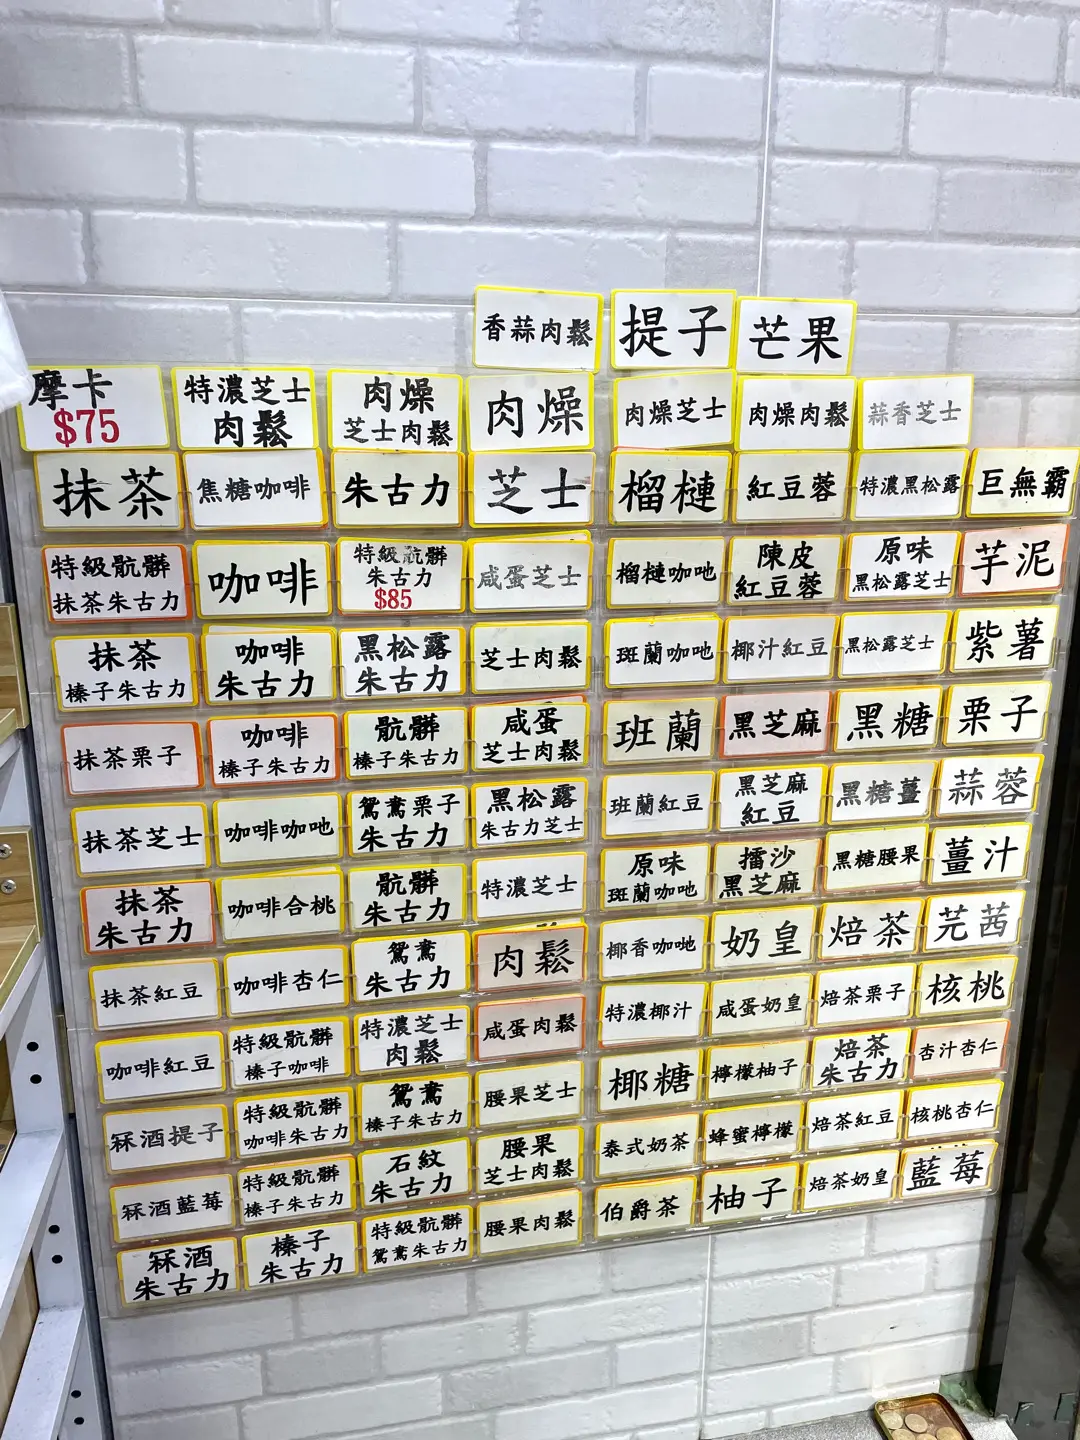 香蒜肉鬆
提子
芒果
摩卡
$75
特濃芝士
肉鬆
肉燥
芝士肉鬆
肉燥
肉燥芝士
肉燥肉鬆
蒜香芝士
抹茶
焦糖咖啡
朱古力
芝士
榴槤
紅豆蓉
特濃黑松露
巨無霸
特級骯髒
抹茶朱古力
咖啡
特級骯髒
朱古力
$85
咸蛋芝士
榴槤咖吔
陳皮
紅豆蓉
原味
黑松露芝士
芋泥
抹茶
榛子朱古力
咖啡
朱古力
黑松露
朱古力
芝士肉鬆
斑蘭咖吔
椰汁紅豆
黑松露芝士
紫薯
抹茶栗子
咖啡
榛子朱古力
骯髒
榛子朱古力
咸蛋
芝士肉鬆
班蘭
黑芝麻
黑糖
栗子
抹茶芝士
咖啡咖吔
鴛鴦栗子
朱古力
黑松露
朱古力芝士
班蘭紅豆
黑芝麻
紅豆
黑糖薑
蒜蓉
抹茶
朱古力
咖啡合桃
骯髒
朱古力
特濃芝士
原味
班蘭咖吔
擂沙
黑芝麻
黑糖腰果
薑汁
抹茶紅豆
咖啡杏仁
鴛鴦
朱古力
肉鬆
椰香咖吔
奶皇
焙茶
芫茜
咖啡紅豆
特級骯髒
榛子咖啡
特濃芝士
肉鬆
咸蛋肉鬆
特濃椰汁
咸蛋奶皇
焙茶栗子
核桃
冧酒提子
特級骯髒
咖啡朱古力
鴛鴦
榛子朱古力
腰果芝士
椰糖
檸檬柚子
焙茶
朱古力
杏汁杏仁
冧酒藍莓
特級骯髒
榛子朱古力
石紋
朱古力
腰果
芝士肉鬆
泰式奶茶
蜂蜜檸檬
焙茶紅豆
核桃杏仁
冧酒
朱古力
榛子
朱古力
特級骯髒
鴛鴦朱古力
腰果肉鬆
伯爵茶
柚子
焙茶奶皇
藍莓